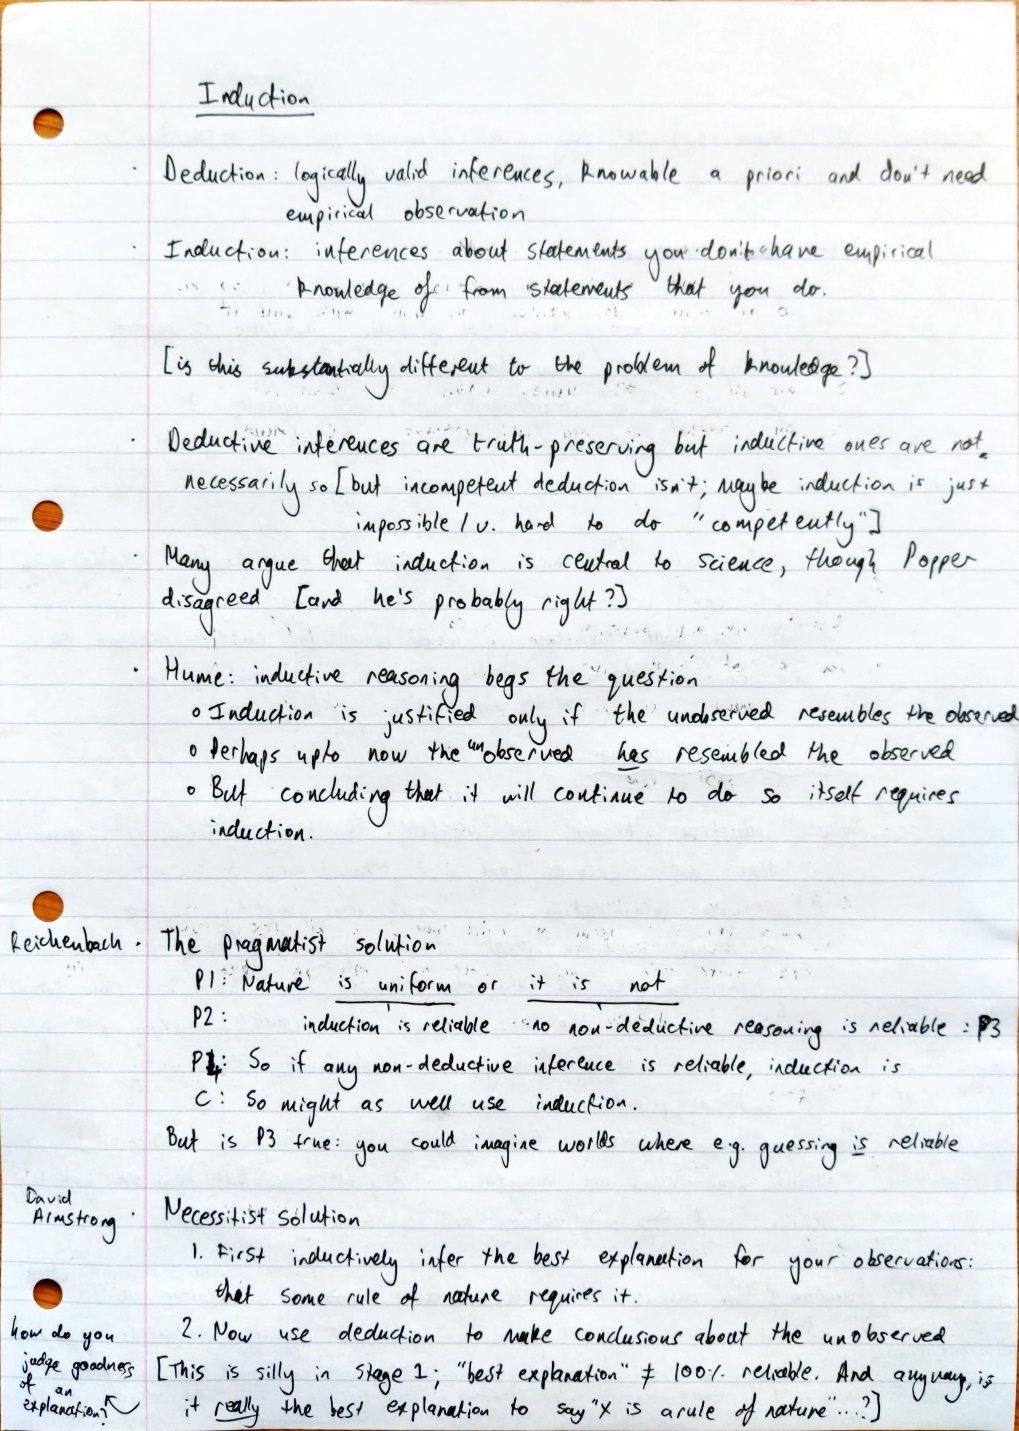 Induction
· Deduction: logically valid inferences, knowable a priori and don't need
empirical observation
· Induction: inferences about statements you don't have empirical
knowledge of from statements that you do.
[is this substantially different to the problem of knowledge?]
· Deductive inferences are truth-preserving but inductive ones are not
necessarily so [but incompetent deduction isn't; maybe induction is just
impossible / v. hard to do "competently"]
· Many argue that induction is central to science, though Popper
disagreed [and he's probably right?]
· Hume: inductive reasoning begs the question
o Induction is justified only if the unobserved resembles the observed
o Perhaps upto now the unobserved has resembled the observed
o But concluding that it will continue to do so itself requires
induction.
Reichenbach · The pragmatist solution
P1: Nature is uniform or it is not
P2: induction is reliable no non-deductive reasoning is reliable : P3
P4: So if any non-deductive inference is reliable, induction is
C: So might as well use induction.
But is P3 true: you could imagine worlds where e.g. guessing is reliable
David
Armstrong · Necessitist solution
1. First inductively infer the best explanation for your observations:
that some rule of nature requires it.
2. Now use deduction to make conclusions about the unobserved
[This is silly in stage 1; "best explanation" ≠ 100% reliable. And anyway, is
it really the best explanation to say "X is a rule of nature"...?]
how do you
judge goodness
of an
explanation?